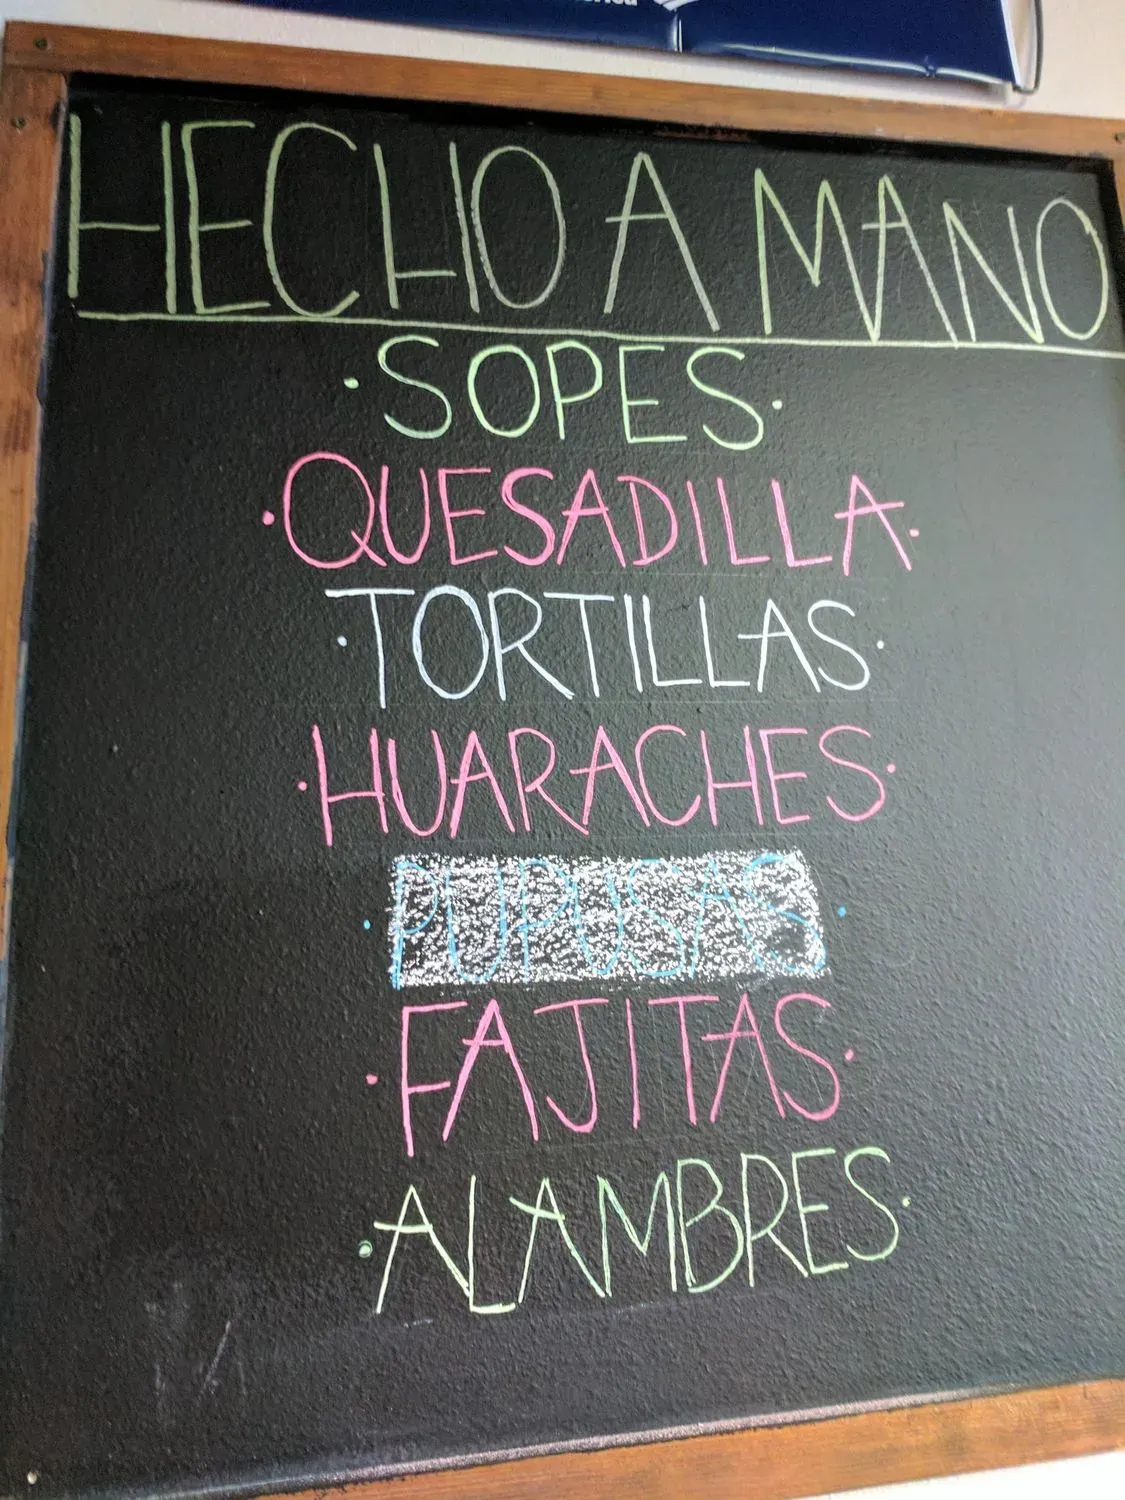 HECHO A MANO
·SOPES·
·QUESADILLA·
·TORTILLAS·
·HUARACHES·
·PUPUSAS·
·FAJITAS·
·ALAMBRES·